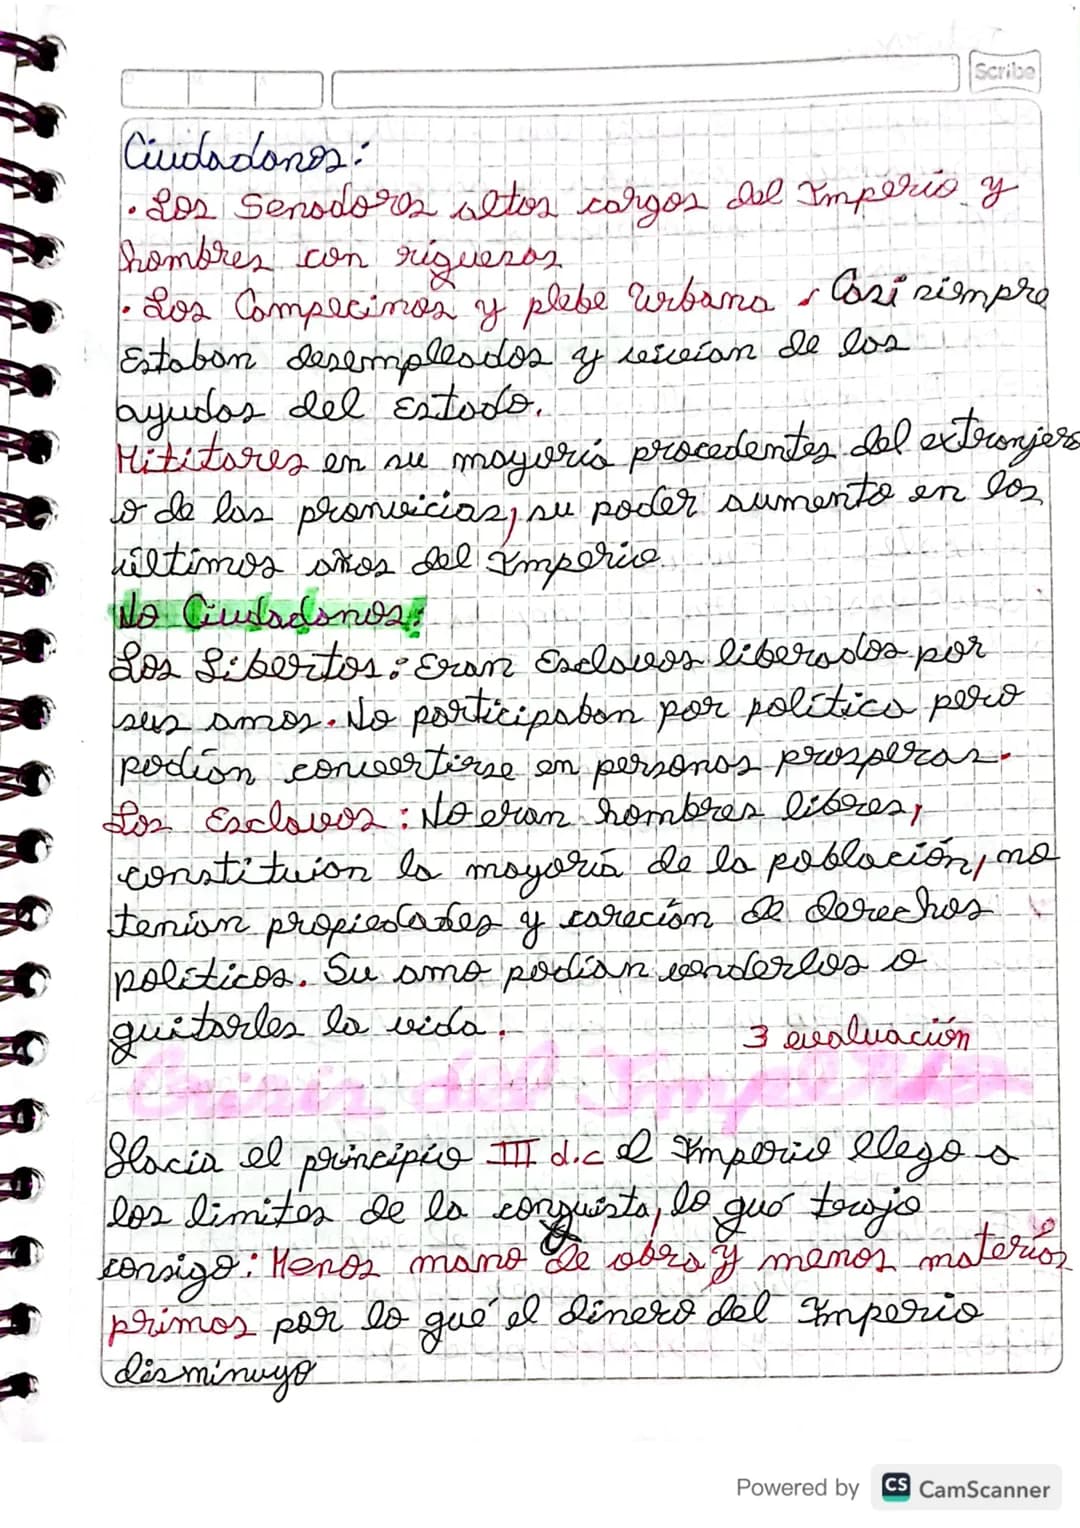 Scribe
Ciudadanos:
• Los Senadores altos cargos del Imperio y
hombres con riquezas
• Los Campecinos y plebe urbana Casi siempre
Estaban desempleados y vivian de los
ayudas del Estado.
Militares en su mayoría procedentes del extranjero
o de las provicias, su poder aumento en los
últimos años del Imperio
No Ciudadanos:
Los Libertos: Eran Esclavos liberados por
sus amos. No participaban por política pero
podían convertirse en personas prosperas.
Los Esclavos: No eran hombres libres,
constituian la mayoría de la población, no
tenian propiedades y carecían de derechos
políticos. Su amo podían venderlos o
quitarles la vida.
3 evaluación
Crisis del Imperio
Hacia el principio III d.c el Imperio llego a
los limites de la conquista, lo qué trajo
consigo: Menos mano de obra y menos materias
primas por lo qué el dinero del Imperio
disminuyo
Powered by CS CamScanner